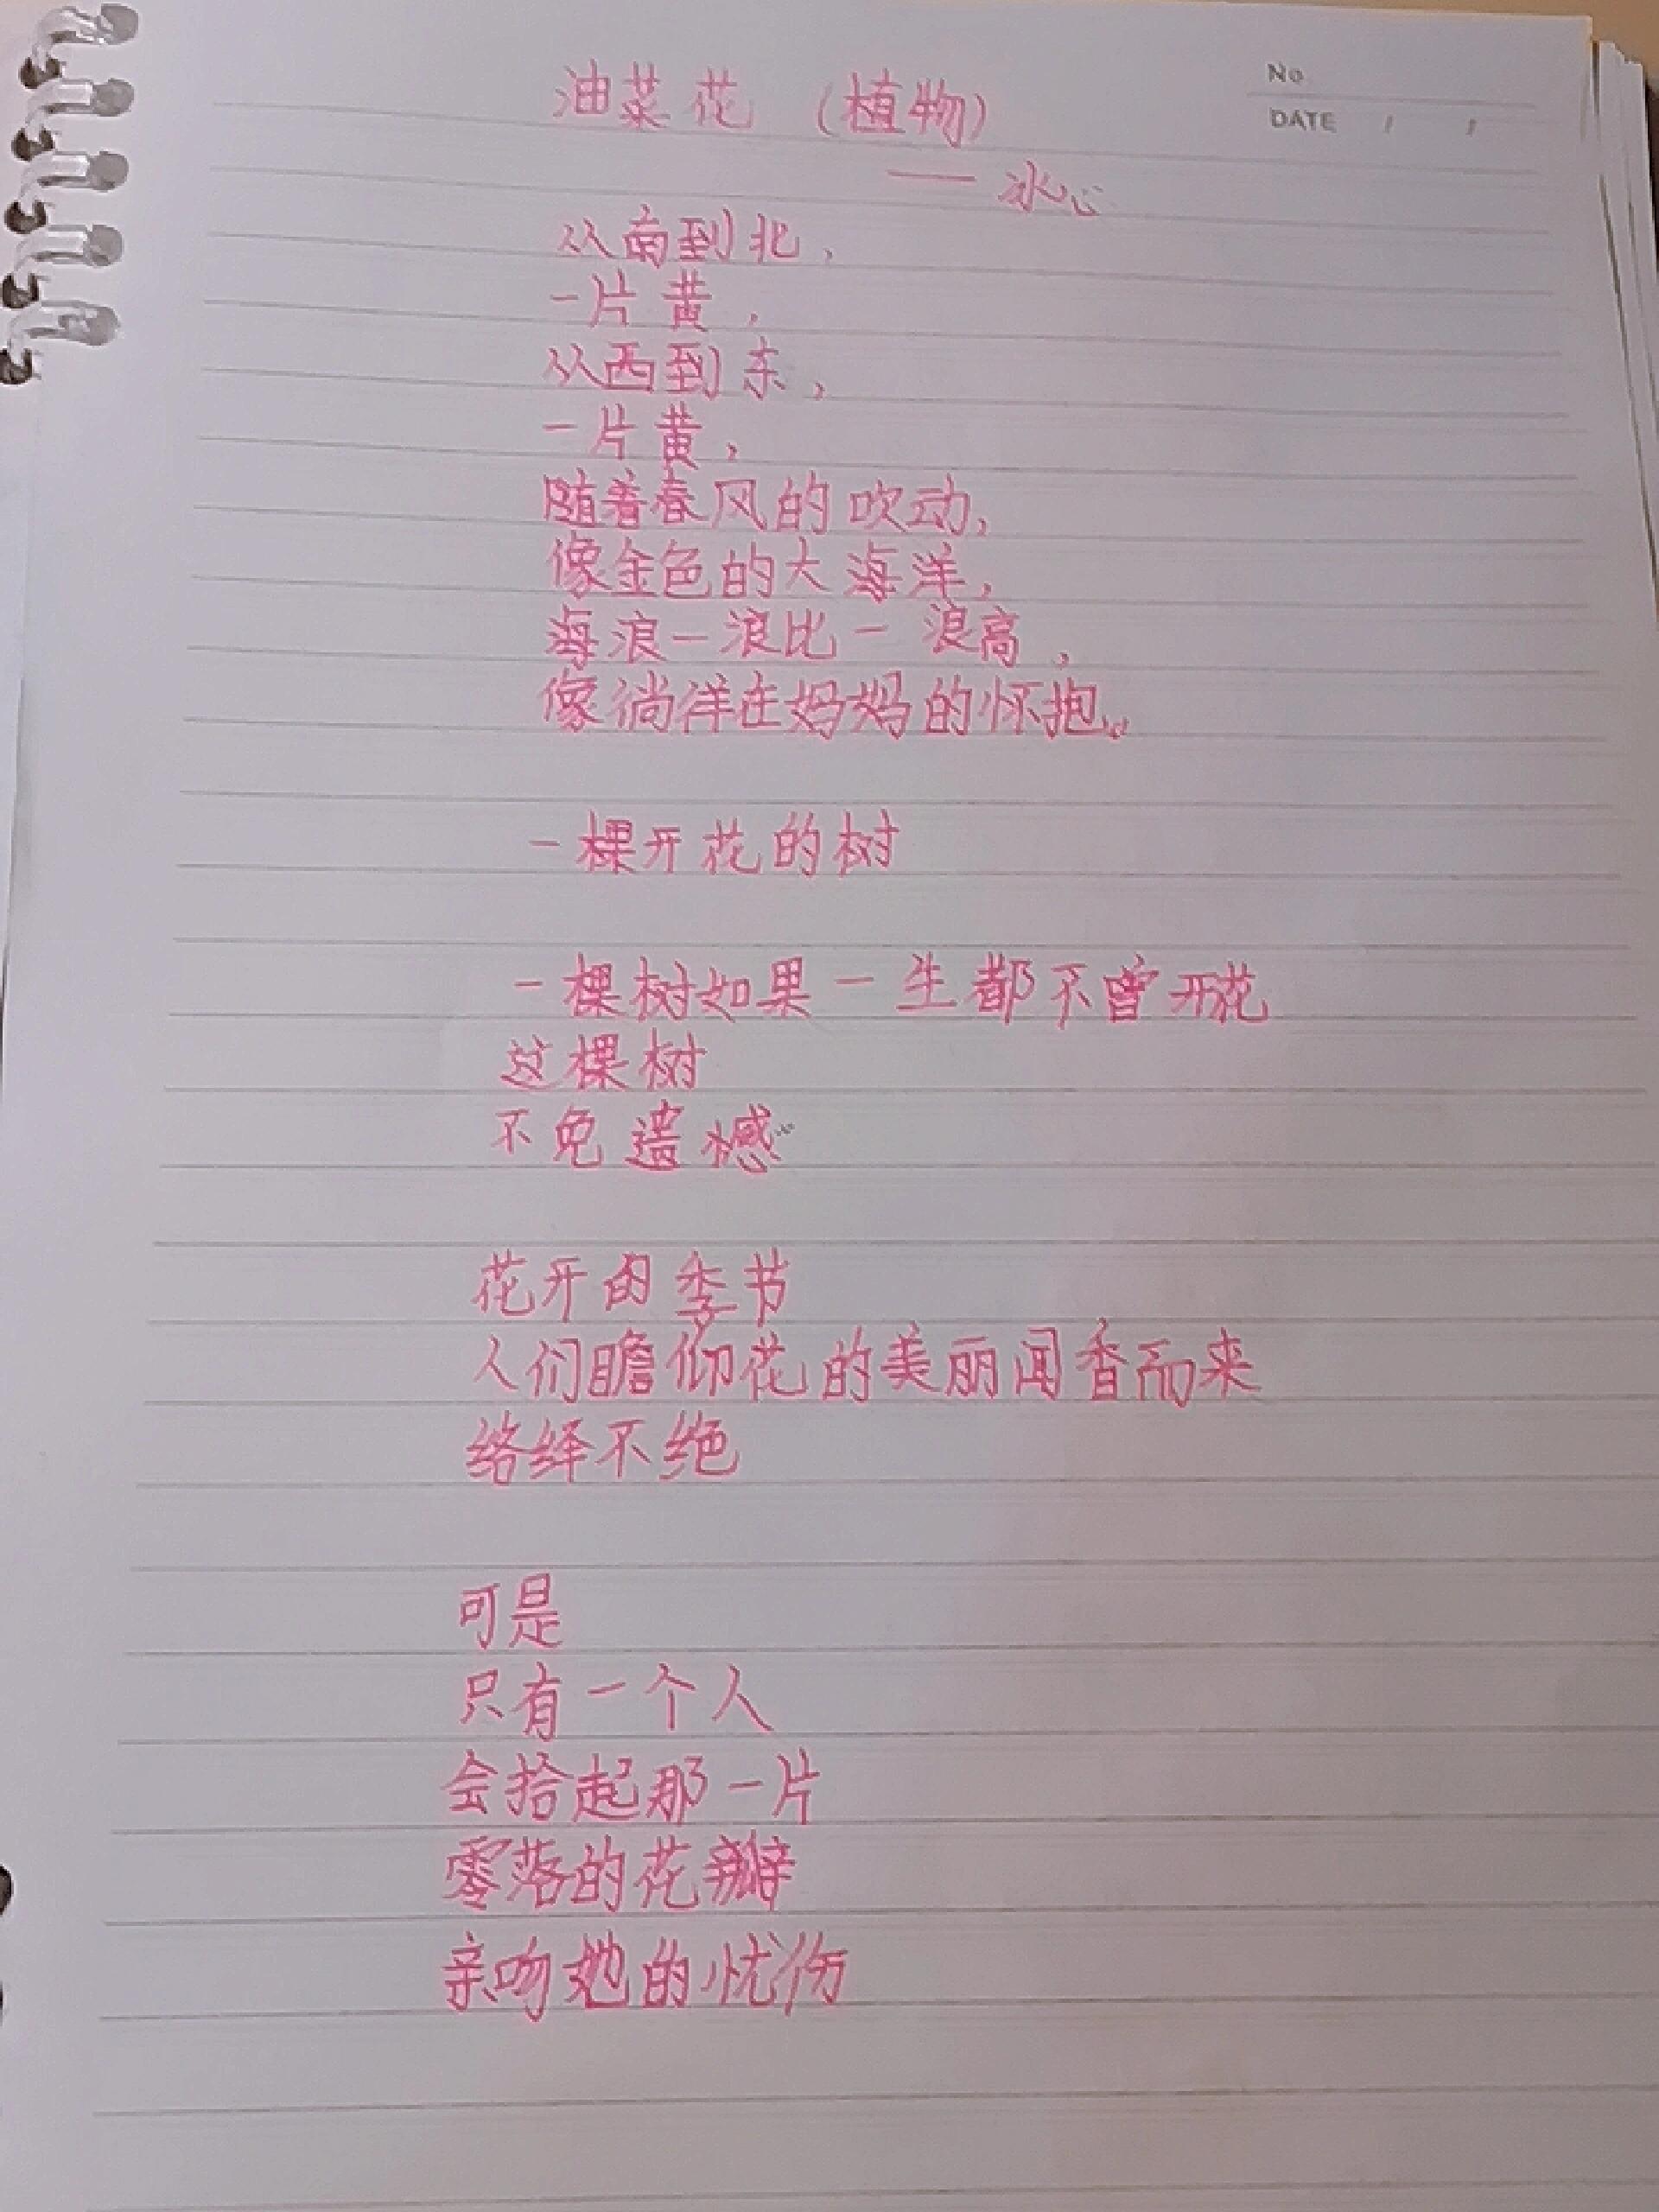 No
DATE / /
油菜花 (植物)
——冰心
从南到北,
一片黄,
从西到东,
一片黄,
随着春风的吹动,
像金色的大海洋,
海浪一浪比一浪高,
像徜徉在妈妈的怀抱。
一棵开花的树
一棵树如果一生都不曾开花
这棵树
不免遗憾
花开的季节
人们瞻仰花的美丽闻香而来
络绎不绝
可是
只有一个人
会拾起那一片
零落的花瓣
亲吻她的忧伤